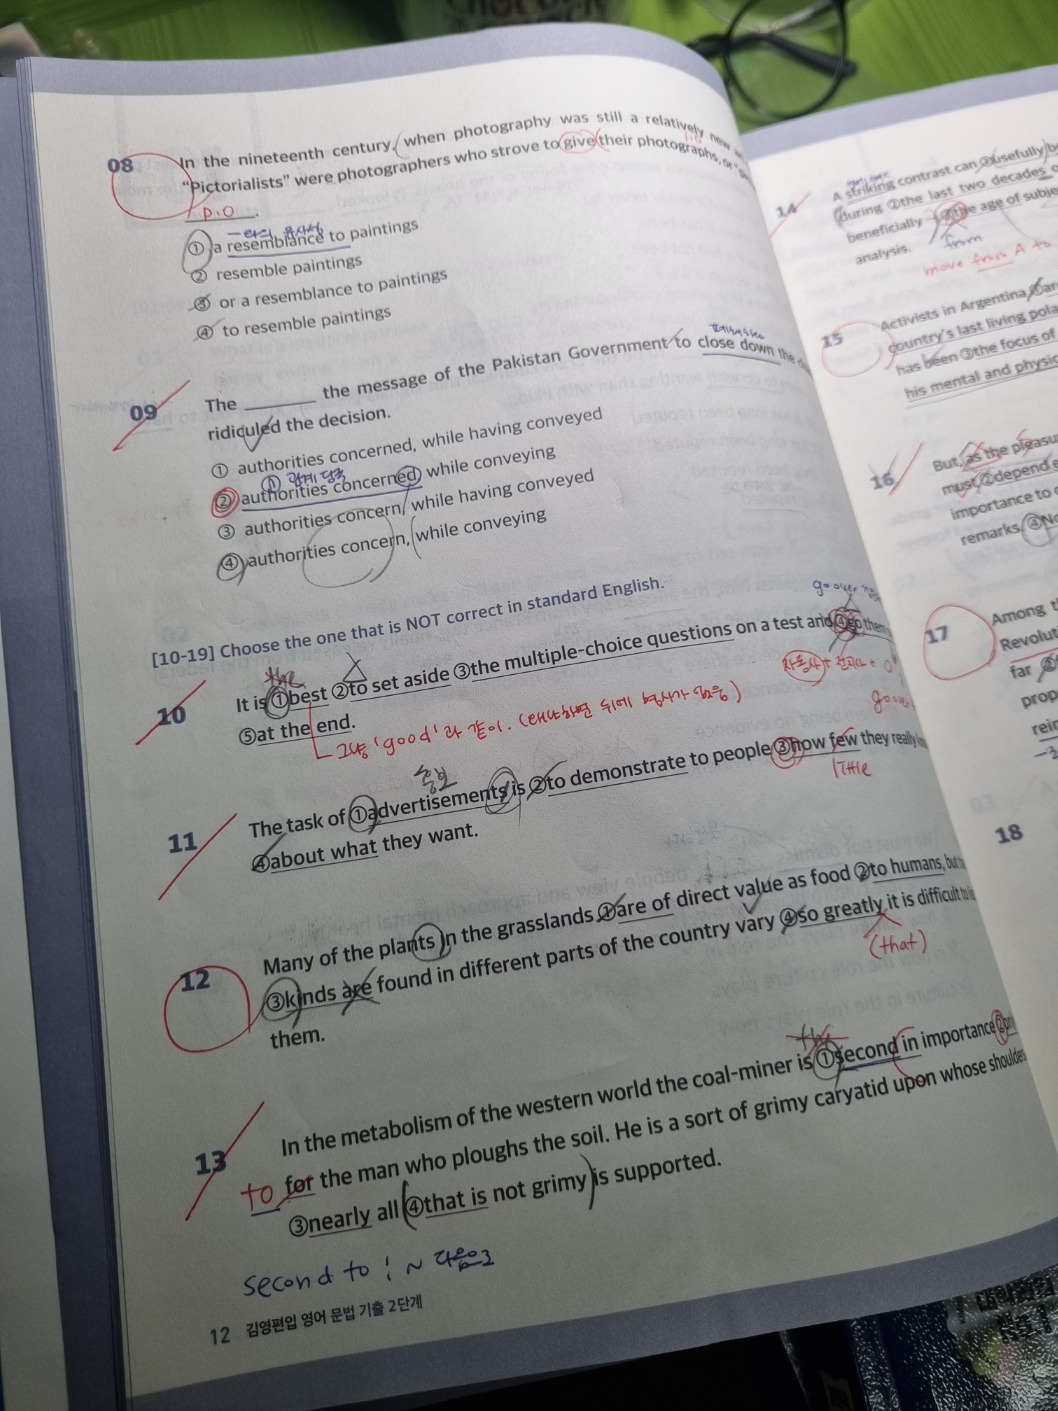 08 In the nineteenth century, when photography was still a relatively new
"Pictorialists" were photographers who strove to give their photographs, or
P.O
① a resemblance to paintings
② resemble paintings
③ or a resemblance to paintings
④ to resemble paintings
09 The ______ the message of the Pakistan Government to close down the
ridiculed the decision.
① authorities concerned, while having conveyed
관계 당국
② authorities concerned, while conveying
③ authorities concern, while having conveyed
④ authorities concern, while conveying
[10-19] Choose the one that is NOT correct in standard English.
go over
10 It is ①best ②to set aside ③the multiple-choice questions on a test and ④go
the
자동사 + 전치사 +
⑤at the end.
그냥 'good'과 같이. (
11 The task of ①advertisements is ②to demonstrate to people ③how few they really
little
④about what they want.
12 Many of the plants in the grasslands ①are of direct value as food ②to humans, but
③kinds are found in different parts of the country vary ④so greatly it is difficult to
(that)
them.
the
13 In the metabolism of the western world the coal-miner is ①second in importance ②
to for the man who ploughs the soil. He is a sort of grimy caryatid upon whose shoulders
③nearly all ④that is not grimy is supported.
second to : ~ 다음으로
12 김영편입 영어 문법 기출 2단계
14 A striking contrast can ①usefully
during ②the last two decades
beneficially the age of
from
analysis.
move from A to
15 Activists in Argentina
country's last living
has been ③the focus of
his mental and
16 But, as the
must ②depend
importance to
remarks. ④
17 Among
far
18